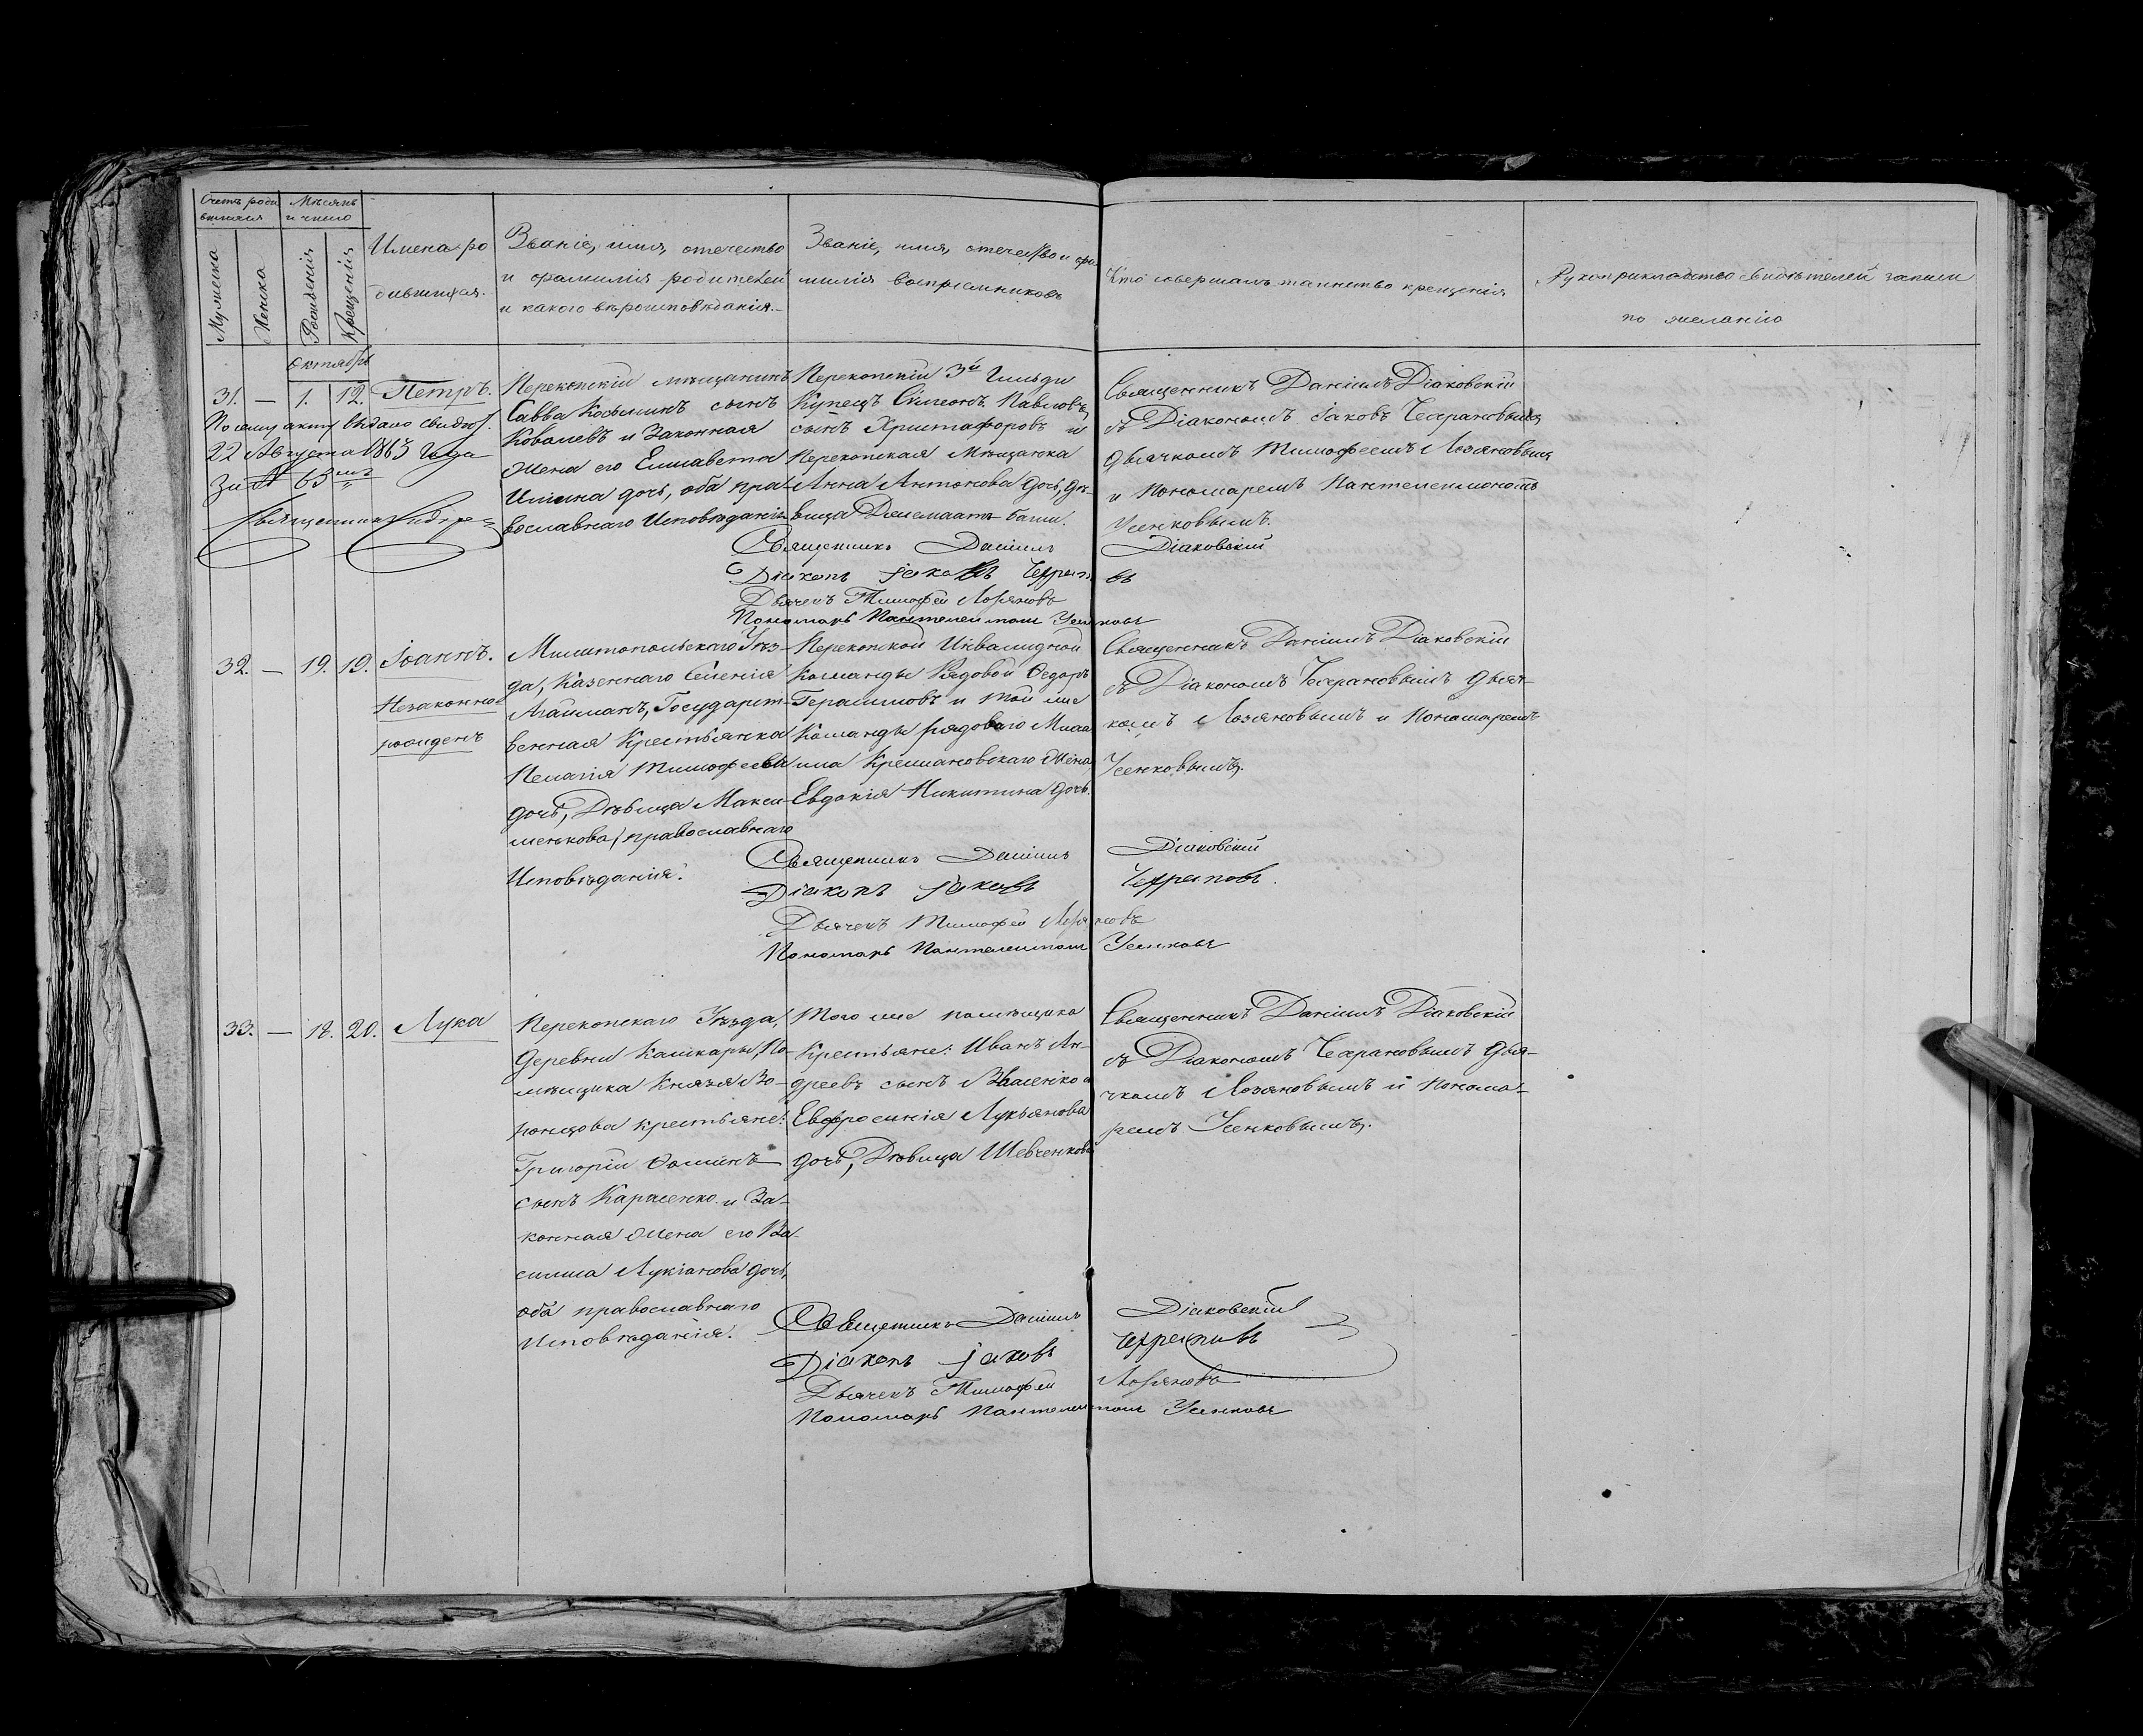 Счетъ роди
вшихся
Мѣсяцъ
и число
Мужеска
Женска
Рожденія
Крещенія
Имена ро
дившихся.
Званіе, имя, отечество
и фамилія родителей
и какого вѣроисповѣданія.
Званіе, имя, отечество и фа
милія воспріемниковъ
Кто совершалъ таинство крещенія
Рукоприкладство свидѣтелей записи
по желанію
Октябрь
31. — 1. 12. Петръ.
По сему акту выдано свидѣт.
22 Августа 1863 года
за № 65
Священникъ
Перекопскій мѣщанинъ
Савва Косьминъ сынъ
Ковалевъ и Законная
жена его Елисавета
Ильина дочь, оба пра-
вославнаго Исповѣданія
Перекопскій 3й Гильди
Купецъ Сѵмеонъ Павловъ
сынъ Христафоровъ и
Перекопская Мѣщанка
Анна Антонова дочь, дѣ-
вица
Священникъ Даніилъ Діаковскій
съ Діакономъ Іаковъ
дьячкомъ Тимофеемъ Лозяновымъ
и Пономаремъ Пантелеимономъ
Усенковымъ.
Священникъ Даніилъ Діаковскій
Діаконъ Іаковъ
Дьячекъ Тимофей Лозяновъ
Пономарь Пантелеимонъ Усенковъ
32. — 19. 19. Іоаннъ.
Незаконно
рожденъ
Мелитопольскаго Уѣз-
да, Казеннаго Селенія
Агайманъ, Государст-
венная Крестьянка
Пелагія Тимофеева
дочь, Дѣвица Макси-
менкова, православнаго
Исповѣданія.
Перекопской Инвалидной
Команды Рядовой Ѳедоръ
Герасимовъ и той же
Команды рядоваго
Кремановскаго жена
Евдокія Никитина дочь.
Священникъ Даніилъ Діаковскій
съ Діакономъ дьяч-
комъ Лозяновымъ и Пономаремъ
Усенковымъ.
Священникъ Даніилъ Діаковскій
Діаконъ Іаковъ
Дьячекъ Тимофей Лозяновъ
Пономарь Пантелеимонъ Усенковъ
33. — 18. 20. Лука
Перекопскаго Уѣзда,
деревни Кашкары, По-
мѣщика Князя Во-
ронцова крестьяне:
Григорій Ѳоминъ
сынъ Карпенко и За-
конная жена его Ва-
силиса Лукіанова дочь,
оба православнаго
Исповѣданія.
Того же помѣщика
Крестьяне: Иванъ Ан-
дреевъ сынъ и
Евфросинія Лукьянова
дочь, Дѣвица Шевченкова
Священникъ Даніилъ Діаковскій
съ Діакономъ дья-
чкомъ Лозяновымъ и Понома-
ремъ Усенковымъ.
Священникъ Даніилъ Діаковскій
Діаконъ Іаковъ
Дьячекъ Тимофей Лозяновъ
Пономарь Пантелеимонъ Усенковъ